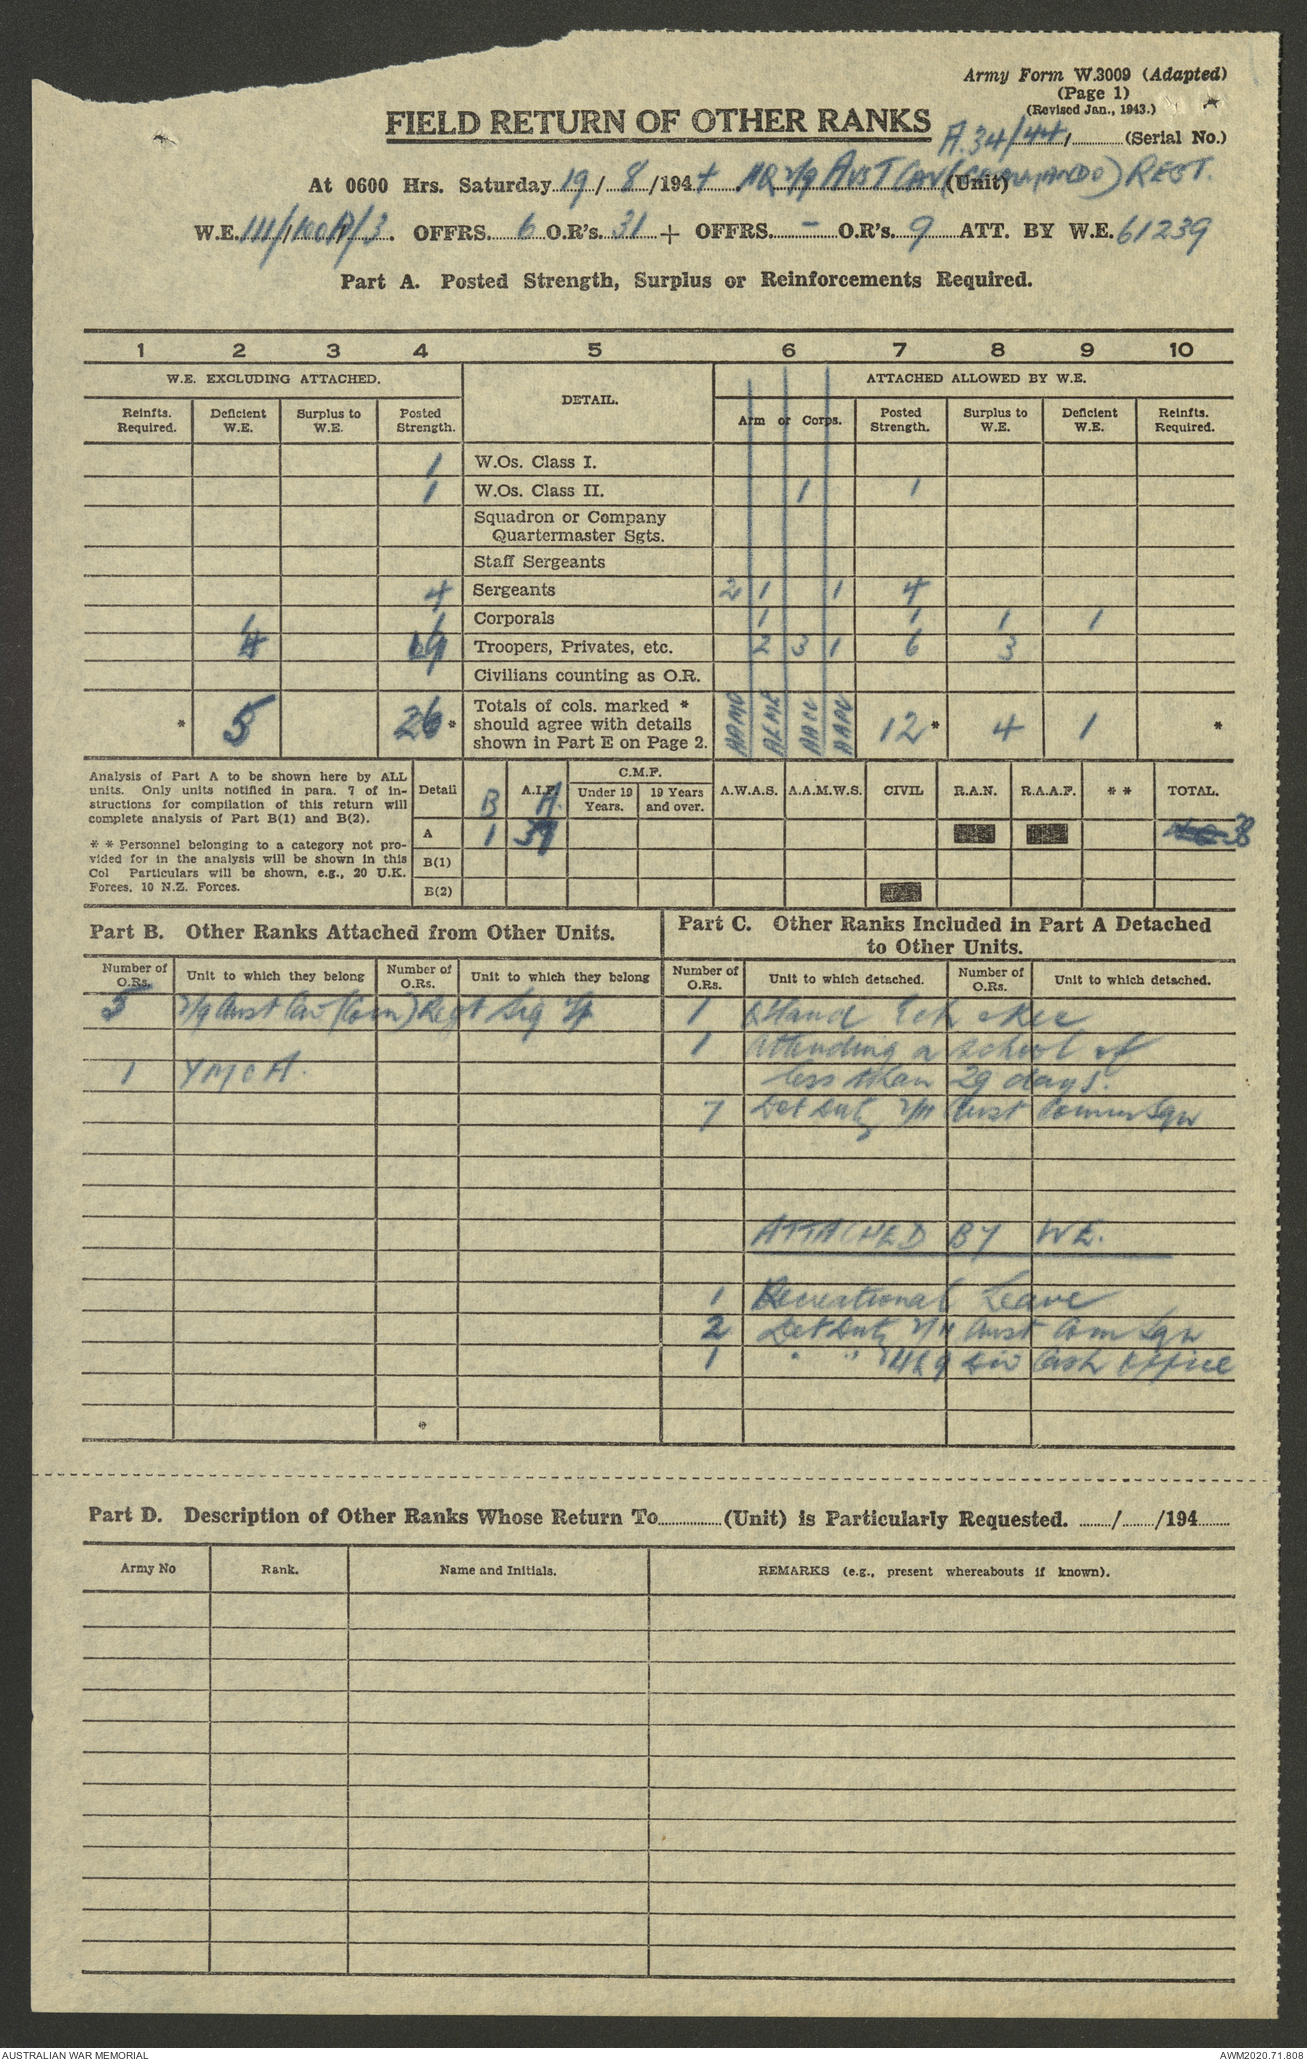 Army Form W.3009 (Adapted)
(Page 1)
(Revised Jan., 1943.)
FIELD RETURN OF OTHER RANKS
A.34/44, (Serial No.)
At 0600 Hrs. Saturday 19/8/1944 HQ 2/9 AUST CAV (COMMANDO) REGT. (Unit)
W.E. OFFRS. 6 O.R's. 31 + OFFRS. - O.R's. 9 ATT. BY W.E. 61239
Part A. Posted Strength, Surplus or Reinforcements Required.
1 2 3 4 5 6 7 8 9 10
W.E. EXCLUDING ATTACHED. DETAIL. ATTACHED ALLOWED BY W.E.
Reinfts. Required. Deficient W.E. Surplus to W.E. Posted Strength. Arm or Corps. Posted Strength. Surplus to W.E. Deficient W.E. Reinfts. Required.
1 W.Os. Class I.
1 W.Os. Class II. 1 1
Squadron or Company
Quartermaster Sgts.
Staff Sergeants
4 Sergeants 2 1 1 4
1 1 Corporals 1 1 1 1
4 19 Troopers, Privates, etc. 2 3 1 6 3
Civilians counting as O.R.
* 5 26 * Totals of cols. marked * should agree with details shown in Part E on Page 2. AAMC 12 * 4 1 *
Analysis of Part A to be shown here by ALL
units. Only units notified in para. 7 of in-
structions for compilation of this return will
complete analysis of Part B(1) and B(2).
* * Personnel belonging to a category not pro-
vided for in the analysis will be shown in this
Col Particulars will be shown, e.g., 20 U.K.
Forces, 10 N.Z. Forces.
Detail B A.I.F. A. C.M.F. Under 19 Years. 19 Years and over. A.W.A.S. A.A.M.W.S. CIVIL R.A.N. R.A.A.F. * * TOTAL.
A 1 37 38
B(1)
B(2)
Part B. Other Ranks Attached from Other Units.
Number of O.Rs. Unit to which they belong Number of O.Rs. Unit to which they belong
5 2/9 Aust Cav (Com) Regt Sig Tp
1 YMCA.
Part C. Other Ranks Included in Part A Detached
to Other Units.
Number of O.Rs. Unit to which detached. Number of O.Rs. Unit to which detached.
1
1 Attending a school of
less than 29 days.
7 Det Duty 2/11 Aust Comm Sqn
ATTACHED BY WE.
1 Recreational Leave
2 Det Duty 2/11 Aust Com Sqn
1 " " Div Cash Office
Part D. Description of Other Ranks Whose Return To (Unit) is Particularly Requested. / /194
Army No Rank. Name and Initials. REMARKS (e.g., present whereabouts if known).
AUSTRALIAN WAR MEMORIAL AWM2020.71.808